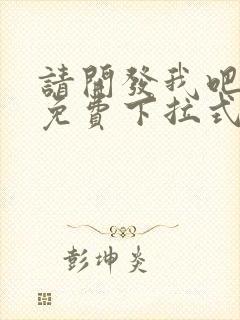 請開發我吧
免費下拉式
彭坤炎